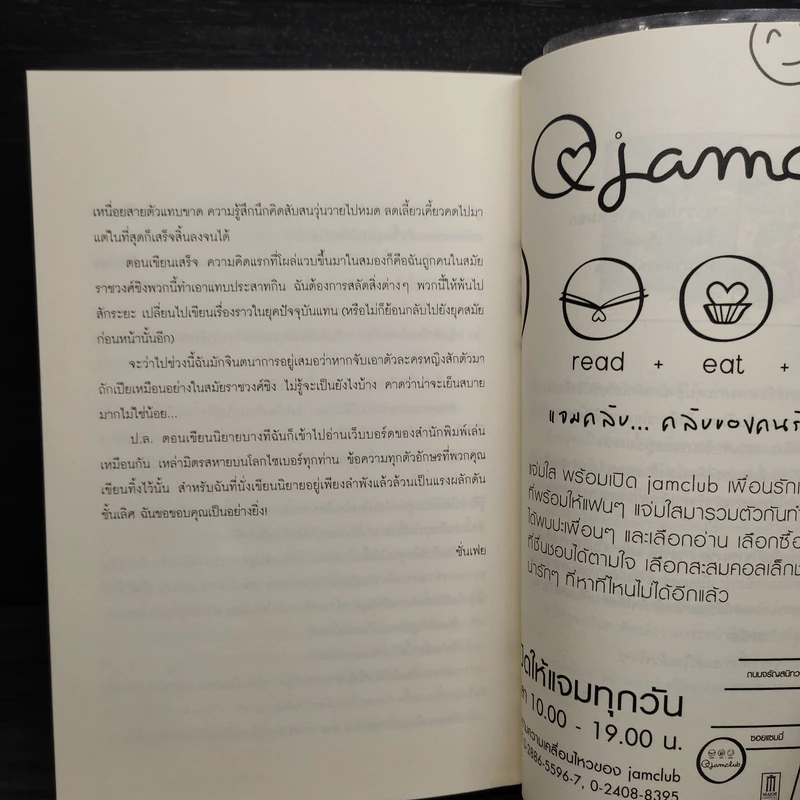 เหนื่อยสายตัวแทบขาด ความรู้สึกนึกคิดสับสนวุ่นวายไปหมด ลดเลี้ยวเคี้ยวคดไปมา
แต่ในที่สุดก็เสร็จสิ้นลงจนได้
ตอนเขียนเสร็จ ความคิดแรกที่โผล่แวบขึ้นมาในสมองก็คือฉันถูกคนในสมัย
ราชวงศ์ชิงพวกนี้ทำเอาแทบประสาทกิน ฉันต้องการสลัดสิ่งต่างๆ พวกนี้ให้พ้นไป
สักระยะ เปลี่ยนไปเขียนเรื่องราวในยุคปัจจุบันแทน (หรือไม่ก็ย้อนกลับไปยังยุคสมัย
ก่อนหน้านั้นอีก)
จะว่าไปช่วงนี้ฉันมักจินตนาการอยู่เสมอว่าหากจับเอาตัวละครหญิงสักตัวมา
ถักเปียเหมือนอย่างในสมัยราชวงศ์ชิง ไม่รู้จะเป็นยังไงบ้าง คาดว่าน่าจะเย็นสบาย
มากไม่ใช่น้อย...
ป.ล. ตอนเขียนนิยายบางทีฉันก็เข้าไปอ่านเว็บบอร์ดของสำนักพิมพ์เล่น
เหมือนกัน เหล่ามิตรสหายบนโลกไซเบอร์ทุกท่าน ข้อความทุกตัวอักษรที่พวกคุณ
เขียนทิ้งไว้นั้น สำหรับฉันที่นั่งเขียนนิยายอยู่เพียงลำพังแล้วล้วนเป็นแรงผลักดัน
ชั้นเลิศ ฉันขอขอบคุณเป็นอย่างยิ่ง!
ซั่นเฟย
@jamc
read + eat +
แจมคลับ... คลับของคนรั
แจ่มใส พร้อมเปิด jamclub เพื่อนรัก
ที่พร้อมให้แฟนๆ แจ่มใสมารวมตัวกันทำ
ได้พบปะเพื่อนๆ และเลือกอ่าน เลือกซื้อ
ที่ชื่นชอบได้ตามใจ เลือกสะสมคอลเล็กช
น่ารักๆ ที่หาที่ไหนไม่ได้อีกแล้ว
ปิดให้แจมทุกวัน
10.00 - 19.00 น.
ความเคลื่อนไหวของ jamclub
0-2886-5596-7, 0-2408-8395
ถนนจรัญสนิทว
ซอยแซมมี่
@jamclub
MAJOR